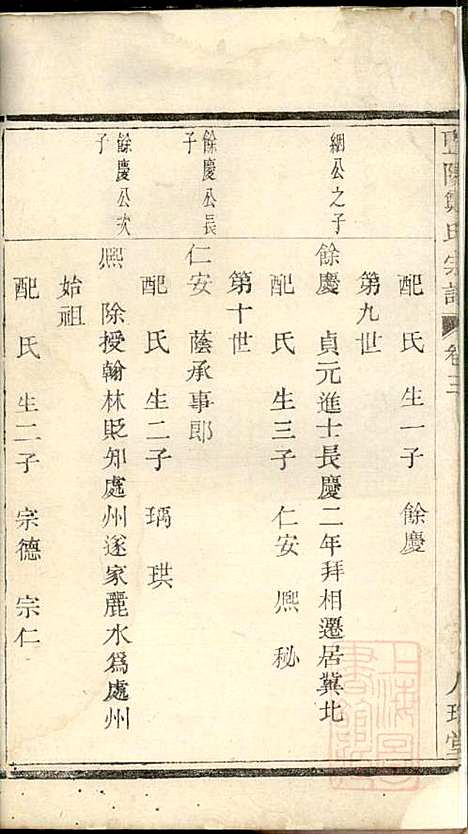 暨陽鄭氏宗譜 卷三
配 氏 生一子 餘慶
第九世
絪公之子
餘慶 貞元進士長慶二年拜相遷居冀北
配 氏 生三子 仁安 熈 秘
第十世
餘慶公長子
仁安 蔭承事郎
配 氏 生二子 瑀 珙
餘慶公次子
熈 除授翰林貶知處州遂家麗水爲處州
始祖
配 氏 生二子 宗德 宗仁
上海圖書館藏